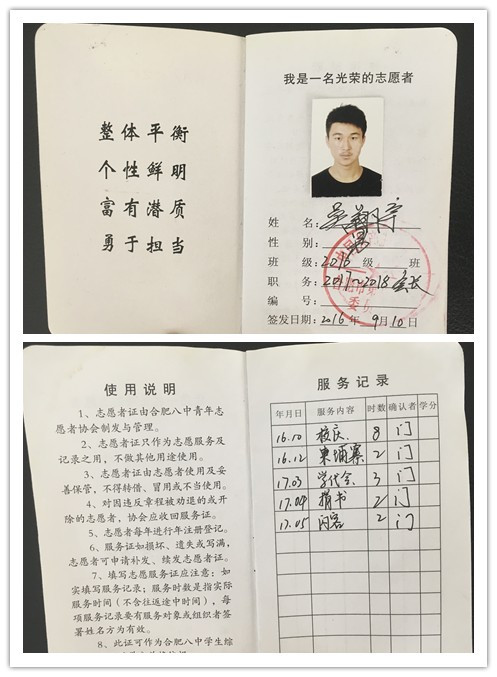 整体平衡
个性鲜明
富有潜质
勇于担当
我是一名光荣的志愿者
姓 名:吴翔宇
性 别:男
班 级:2016级 班
职 务:2017~2018会长
编 号:
签发日期:2016年9月10日
使用说明
1、志愿者证由合肥八中青年志
愿者协会制发与管理。
2、志愿者证只作为志愿服务及
记录之用,不做其他用途使用。
3、志愿者证由志愿者使用及妥
善保管,不得转借、冒用或不当使用。
4、对因违反章程被劝退的或开
除的志愿者,协会应收回服务证。
5、志愿者每年进行年注册登记。
6、服务证如损坏、遗失或写满,
志愿者可申请补发、续发志愿者证。
7、填写志愿服务证应注意:如
实填写服务记录;服务时数是指实际
服务时间(不含往返途中时间),每
项服务记录要有服务对象或组织者签
署姓名方为有效。
8、此证可作为合肥八中学生综
服务记录
年月日 服务内容 时数 确认者 学分
16.10 校庆. 8 门
16.12 柬埔寨 2 门
17.03 学代会 3 门
17.04 捐书 2 门
17.05 内容 2 门